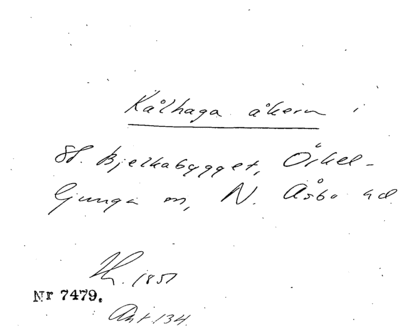 Kålhaga åkern i
St. Bjelkabygget, Örkel-
ljunga sn, N. Åsbo hd
1851
Nr 7479.
Ant. 134.